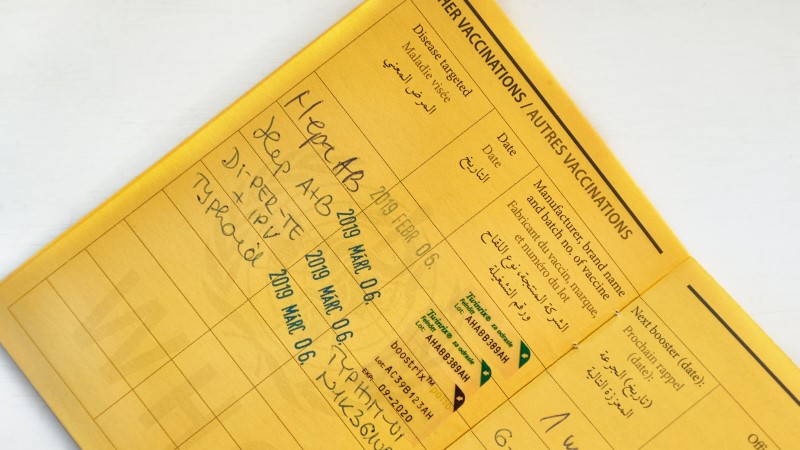 HER VACCINATIONS / AUTRES VACCINATIONS
Disease targeted
Maladie visée
المرض المعني
Date
Date
التاريخ
Manufacturer, brand name
and batch no. of vaccine
Fabricant du vaccin, marque,
et numéro du lot
الشركة المنتجة، نوع اللقاح
ورقم التشغيلة
Next booster (date):
Prochain rappel
(date):
(تاريخ) الجرعة
المعززة التالية
Offi
Hepa AB
2019 FEBR 06.
Twinrix®
felnőtt
Lot: AHABB389AH
Hep A+B
2019 MÁRC 06.
Twinrix®
felnőtt
Lot: AHABB389AH
DI-PER-TE
+ IPV
2019 MÁRC 06.
boostrix™ polio
Lot: AC39B123AH
EXP: 09-2020
Typhoid
2019 MÁRC 06.
TYPHIM-VI
1
6-